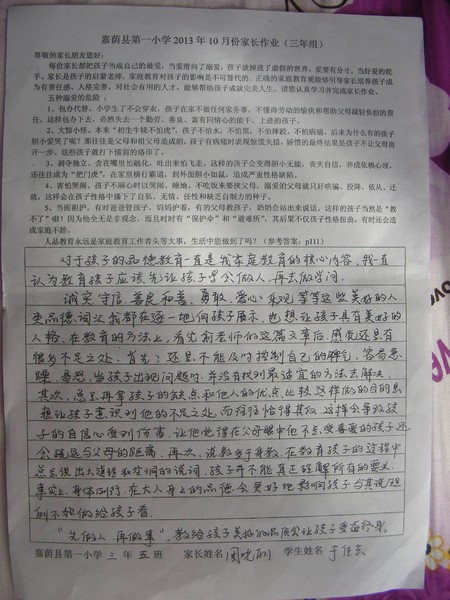 嘉荫县第一小学 2013 年 10 月份家长作业（三年组）
尊敬的家长朋友您好：
每位家长都把孩子当成自己的最爱，当爱滑向了溺爱，孩子就掉进了虚假的世界，爱要有分寸，当好爱的舵
手，家长是孩子的启蒙老师，家庭教育对孩子的影响是不可替代的。正确的家庭教育观能够引导家长培养孩子成
为有责任感、人格完善、对社会有用的人才，能够帮助孩子成就完美人生。请您认真学习并完成家长作业。
五种溺爱的危险：
1、包办代替。小学生了不会穿衣，孩子在家不做任何家务事，不懂得劳动的愉快和帮助父母减轻负担的责
任，这样包办下去，必然失去一个勤劳、善良、富有同情心的能干、上进的孩子。
2、大惊小怪。本来“初生牛犊不怕虎”，孩子不怕水，不怕黑，不怕摔跤，不怕病痛。后来为什么有的孩子
胆小爱哭了呢？那往往是父母和祖父母造成的，孩子有病痛时表现惊慌失措，娇惯的最终结果是孩子不让父母离
开一步。这些孩子就打下懦弱的烙印了。
3、剥夺独立。含在嘴里怕融化，吐出来怕飞走。这样的孩子会变得胆小无能，丧失自信，养成依赖心理，
还往往成为“把门虎”，在家里横行霸道，到外面胆小如鼠，造成严重性格缺陷。
4、害怕哭闹。孩子不顺心时以哭闹、睡地、不吃饭来要挟父母。溺爱的父母就只好哄骗，投降，依从，迁
就，这样会在性格中播下了自私、无情、任性和缺乏自制力的种子。
5、当面袒护。有时爸爸管孩子，妈妈护着，有的父母教孩子，奶奶会站出来说话。这样的孩子当然是“教
不了”啦！因为他全无是非观念，而且时时有“保护伞”和“避难所”，其后果不仅孩子性格扭曲，有时还会造
成家庭不睦。
人品教育永远是家庭教育工作者头等大事，生活中您做到了吗？（参考答案：p111）
对于孩子的品德教育一直是我家庭教育的核心内容，我一直
认为教育孩子应该先让孩子学会做人，再去做学问。
诚实守信、善良和善、勇敢、爱心、乐观 等等这些美好的人
类品德词汇我都在逐一地向孩子展示，也想让孩子具有美好的
人格，在教育的方法上，看完前老师的这篇文章后，感觉还是有
很多不足之处，首先：还是不能及时控制自己的脾气，容易急
躁、易怒，当孩子出现问题时，并没有找到最适宜的方法去解决。
其次，总是再拿孩子的缺点和他人的优点比较，这样做的目的是
想让孩子意识到他的不足之处，而往往恰得其反，这样会导致孩
子的自信心受到伤害，让他觉得在父母眼中他不是受喜爱的孩子，还
会疏远与父母的距离。再次、说教多于身教，在教育孩子的过程中
总是说出大道理和空洞的说词，孩子并不能真正理解所有的要求。
事实上，身体例行，在大人身上的品德会更好地影响孩子，与其说给
例不如做给孩子看。
“先做人 再做事”，教给孩子美好的品质会让孩子受益终身。
嘉荫县第一小学 三 年 五 班 家长姓名 周晓丽 学生姓名 于佳玄